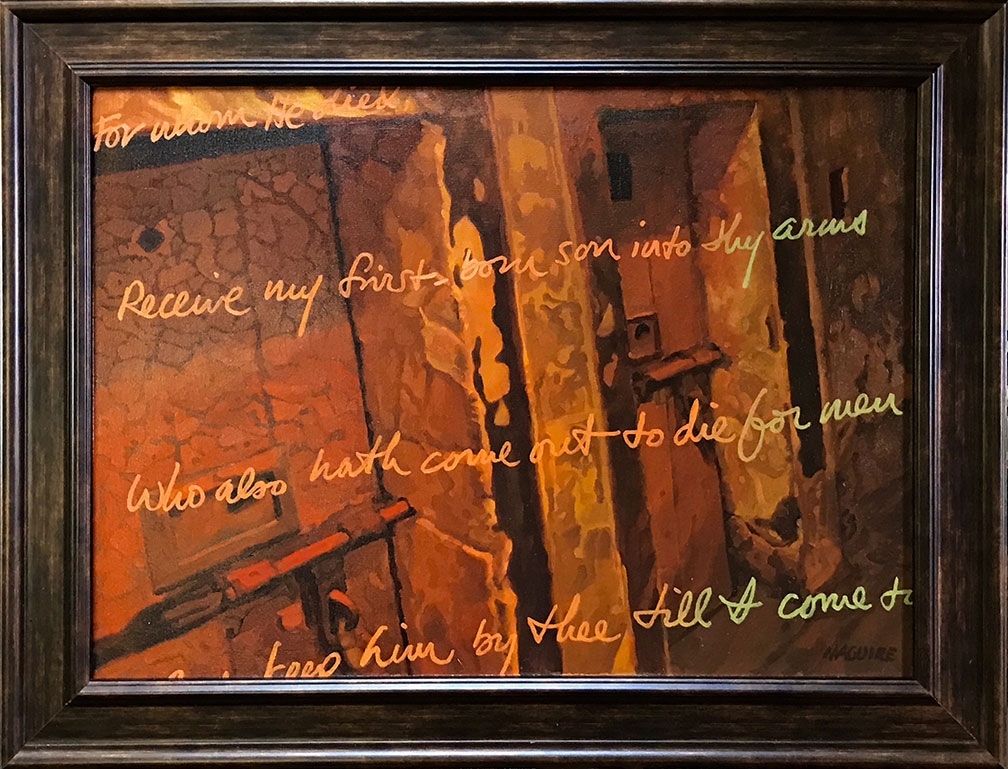 For whom He died.
Receive my first-born son into thy arms
Who also hath come out to die for men
him by thee till I come to
MAGUIRE